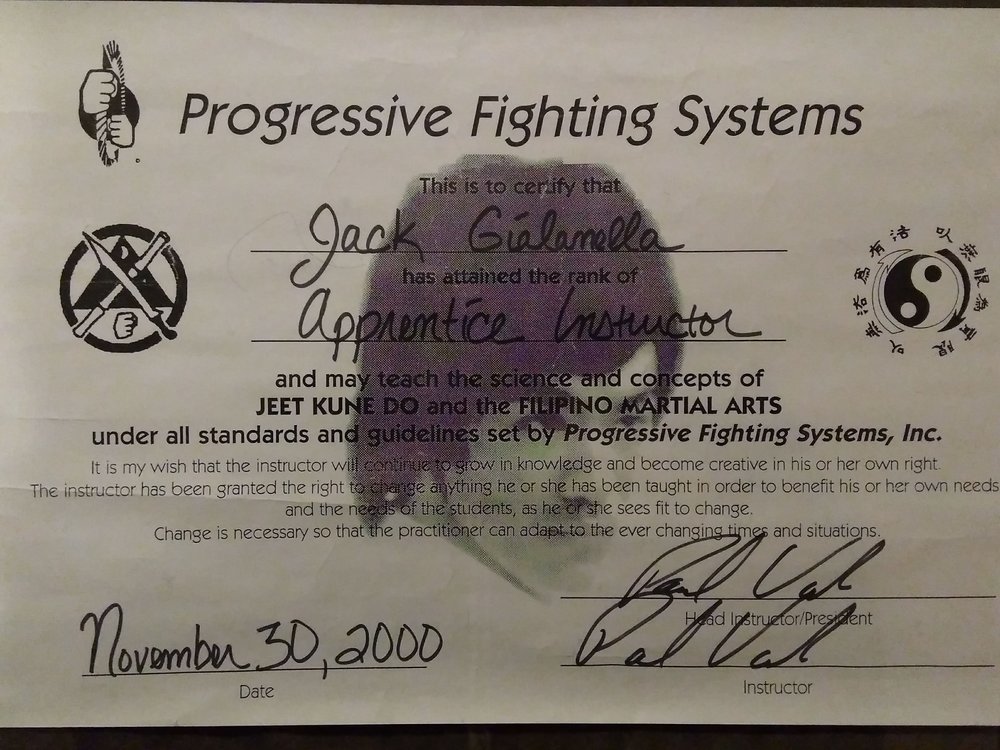 Progressive Fighting Systems
This is to certify that
Jack Gialanella
has attained the rank of
Apprentice Instructor
and may teach the science and concepts of
JEET KUNE DO and the FILIPINO MARTIAL ARTS
under all standards and guidelines set by Progressive Fighting Systems, Inc.
It is my wish that the instructor will continue to grow in knowledge and become creative in his or her own right.
The instructor has been granted the right to change anything he or she has been taught in order to benefit his or her own needs
and the needs of the students, as he or she sees fit to change.
Change is necessary so that the practitioner can adapt to the ever changing times and situations.
Head Instructor/President
November 30, 2000
Date
Instructor
以無限為有限
以無法為有法